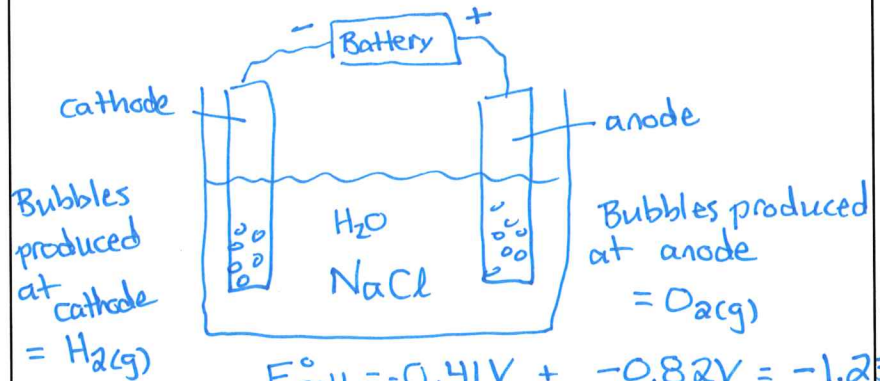 - Battery +
cathode
anode
Bubbles
produced
at
cathode
= H₂(g)
H₂O
NaCl
Bubbles produced
at anode
= O₂(g)
-0.41V + -0.82V =